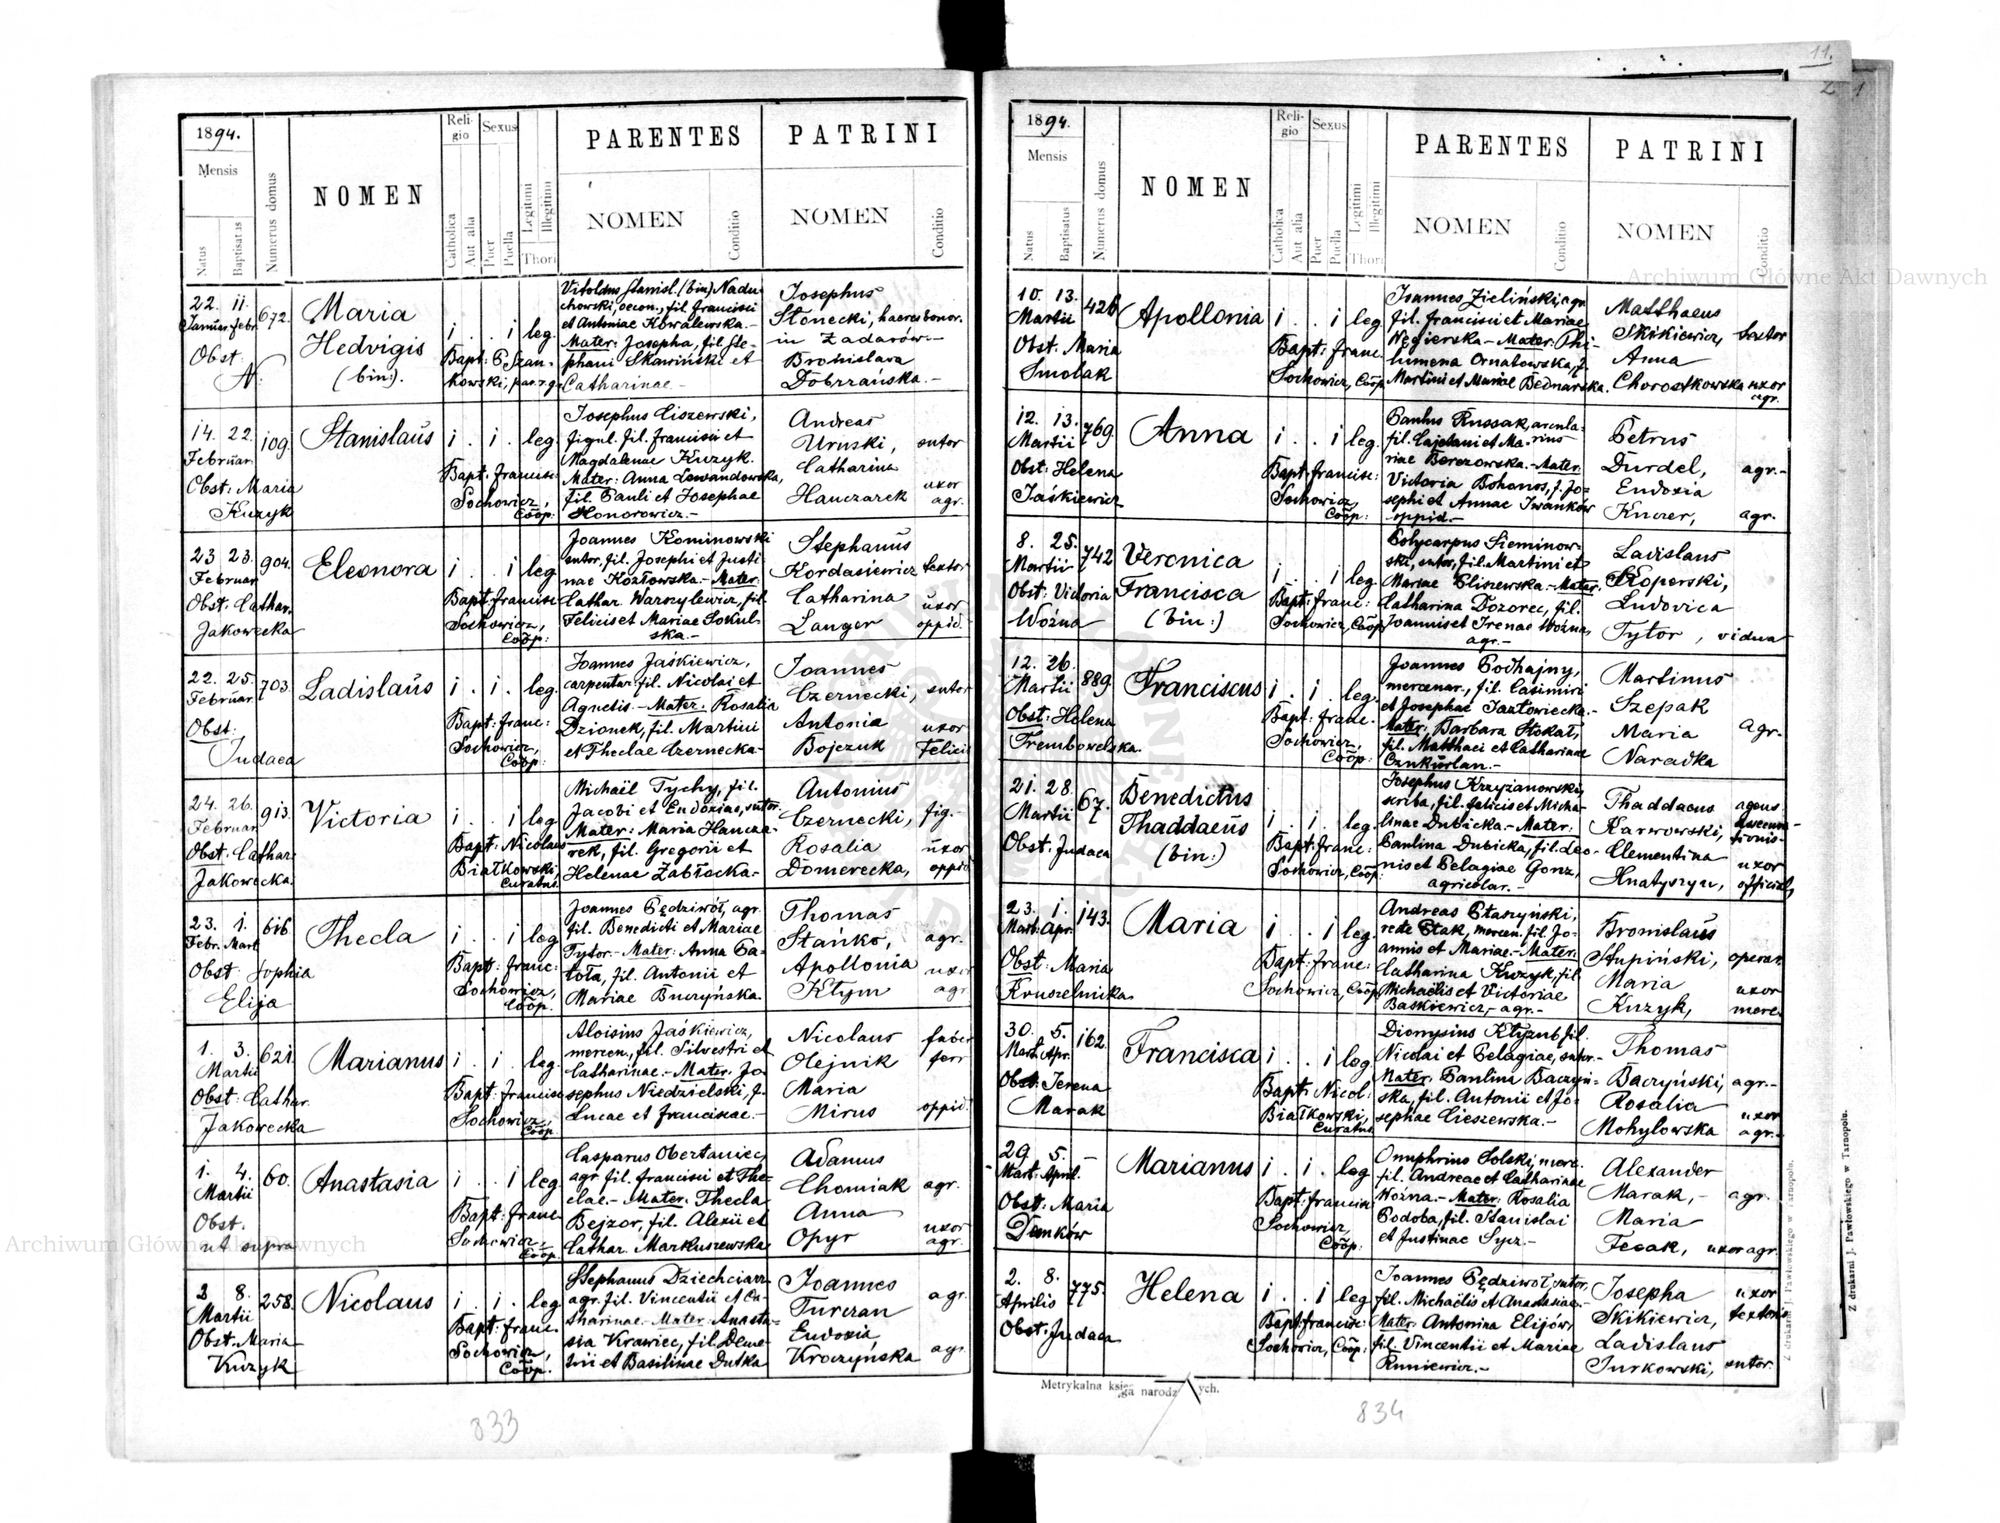 11.
1894.
Mensis
Natus
Baptisatus
Numerus domus
NOMEN
Religio
Catholica
Aut alia
Sexus
Puer
Puella
Legitimi
Illegitimi
Thori
PARENTES
NOMEN
Conditio
PATRINI
NOMEN
Conditio
22. 11. 672.
Januar Febr.
Obst:
N:
Maria
Hedvigis
(bin:).
i . . i leg.
Bapt: P. Szan-
kowski,
Vitoldus Stanisl. (bin) Nadu-
chowski, oecon., fil. Francisci
et Antoniae Kowalewska.-
Mater: Josepha, fil. Ste-
phani Skawiński et
Catharinae.-
Josephus
Słonecki, haeres bonor.
in Zadarów.-
Bronislava
Dobrzańska.-
14. 22. 109.
Februar.
Obst: Maria
Kuzyk
Stanislaus
i . i . leg.
Bapt: Francisc:
Sochowicz,
Coop:
Josephus Ciszewski,
figul. fil. Francisci et
Magdalenae Kuzyk.
Mater: Anna Lewandowska,
fil. Pauli et Josephae
Honorowicz.-
Andreas
Uruski, sutor
Catharina
Hanczarek uxor agr.
23 23. 904.
Februar
Obst. Cathar.
Jakowecka
Eleonora
i . . i leg
Bapt: Francisc:
Sochowicz,
Coop:
Joannes Kominowski
sutor, fil. Josephi et Justi-
nae Kozłowska.- Mater:
Cathar. Warzylewicz, fil.
Felicis et Mariae Sokul-
ska.-
Stephanus
Kordasiewicz textor
Catharina
Langer uxor oppid.
22. 25. 703.
Februar.
Obst:
Judaea
Ladislaus
i . i . leg.
Bapt: Franc:
Sochowicz,
Coop:
Joannes Jaśkiewicz,
carpentar. fil. Nicolai et
Agnetis.- Mater: Rosalia
Dzionek, fil. Martini
et Theclae Czernecka-
Joannes
Czernecki, sutor
Antonia
Bojczuk uxor Felicis
24. 26. 913.
Februar.
Obst. Cathar.
Jakowecka.
Victoria
i . . i leg
Bapt: Nicolaus
Białkowski,
Curatus
Michaël Tychy, fil.
Jacobi et Eudoxiae, sutor.
Mater: Maria Hancza-
rek, fil. Gregorii et
Helenae Zabłocka-
Antonius
Czernecki, fig.-
Rosalia
Domerecka, uxor oppid.
23. 1. 616
Febr. Mart.
Obst: Sophia
Elija
Thecla
i . . i leg
Bapt: Franc:
Sochowicz,
Coop:
Joannes Pędziwół, agr.
fil. Benedicti et Mariae
Tytor.- Mater: Anna Ga-
tota, fil. Antonii et
Mariae Buczyńska.
Thomas
Stańko, agr.
Apollonia
Kłym uxor agr
1. 3. 621.
Martii
Obst: Cathar.
Jakowecka
Marianus
i . i . leg.
Bapt: Francisc:
Sochowicz,
Coop.
Aloisius Jaśkiewicz,
mercen., fil. Silvestri et
Catharinae.- Mater: Jo-
sephus Niedzielski, f.
Lucae et Franciscae.-
Nicolaus faber
Olejnik ferr
Maria
Mirus oppid.
1. 4. 60.
Martii
Obst.
ut supra
Anastasia
i . . i leg
Bapt: Franc:
Sochowicz,
Coop:
Casparus Obertaniec,
agr. fil. Francisci et The-
clae.- Mater: Thecla
Bejzor, fil. Alexii et
Cathar. Markuszewska
Adamus
Chomiak agr.
Anna
Opyr uxor agr.
3 8. 258.
Martii
Obst. Maria
Kuzyk
Nicolaus
i . i . leg
Bapt: Franc:
Sochowicz,
Coop:
Stephanus Dziechciarz
agr. fil. Vincentii et Ca-
tharinae. Mater: Anasta-
sia Krawiec, fil. Deme-
trii et Basilinae Dutka
Joannes
Turczan agr.
Eudoxia
Kroczyńska agr.
833
1894.
Mensis
Natus
Baptisatus
Numerus domus
NOMEN
Religio
Catholica
Aut alia
Sexus
Puer
Puella
Legitimi
Illegitimi
Thori
PARENTES
NOMEN
Conditio
PATRINI
NOMEN
Conditio
10. 13. 426
Martii
Obst. Maria
Smolak
Apollonia
i . . i leg.
Bapt: Franc:
Sochowicz, Coop
Joannes Zieliński, agr.
fil. Francisci et Mariae
Węgierska- Mater: Phi-
lumena Ornatowska, f.
Martini et Mariae Bednarska.
Matthaeus
Skikiewicz textor
Anna
Chorostkowska uxor agr.
12. 13. 769.
Martii
Obst: Helena
Jaśkiewicz
Anna
i . . i leg.
Bapt: Francisc:
Sochowicz,
Coop:
Paulus Russak, arcula-
rius
fil. Cajetani et Ma-
riae Berezowska.- Mater:
Victoria Bohonos, f. Jo-
sephi et Annae Iwanków
oppid.-
Petrus
Durdel, agr.-
Eudoxia
Kuczer, agr.
8. 25. 742
Martii
Obst: Victoria
Woźna
Veronica
Francisca
(bin:)
i . . i leg.
Bapt: Franc:
Sochowicz, Coop
Polycarpus Sieminow-
ski, sutor, fil. Martini et
Mariae Gliszewska.- Mater:
Catharina Dozorec, fil.
Joannis et Irenae Woźna,
agr.-
Ladislaus
Koperski,
Ludovica
Tytor, vidua
12. 26. 889.
Martii
Obst: Helena
Trembowelska.
Franciscus
i . i . leg.
Bapt: Franc.
Sochowicz,
Coop:
Joannes Podhajny,
mercenar., fil. Casimiri
et Josephae Jazłowiecka.-
Mater: Barbara Stokat,
fil. Matthaei et Catharinae
Czukurlan.-
Martinus
Szepak
Maria agr.
Naradka
21. 28. 67.
Martii
Obst: Judaea
Benedictus
Thaddaeus
(bin:)
i . i . leg.
Bapt: Franc:
Sochowicz, Coop:
Josephus Krzyżanowski,
scriba, fil. Felicis et Micha-
linae Dubicka.- Mater:
Paulina Dubicka, fil. Leo-
nis et Pelagiae Gonz,
agricolar.-
Thaddaeus agens
Karwowski,
Clementina uxor
Hnatyszyn, official,
23. 1. 143.
Mart. Apr.
Obst: Maria
Kruszelnicka
Maria
i . . i leg.
Bapt: Franc:
Sochowicz, Coop
Andreas Ptaszyński,
recte Ptak, mercen. fil. Jo-
annis et Mariae.- Mater:
Catharina Kuzyk, fil.
Michaelis et Victoriae
Baskiewicz,- agr.-
Bronislaus
Stupiński, operar.
Maria uxor
Kuzyk, merc.
30. 5. 162.
Mart. Apr.
Obst: Irena
Marak
Francisca
i . . i leg
Bapt: Nicol:
Białkowski,
Curatus
Dionysius Kłyzub, fil.
Nicolai et Pelagiae, sutor.-
Mater: Paulina Baczyń-
ska, fil. Antonii et Jo-
sephae Cieszewska.-
Thomas
Baczyński, agr.-
Rosalia uxor
Mohylowska agr.-
29 5. -
Mart. April.
Obst: Maria
Danków
Marianus
i . i . leg
Bapt: Francisc:
Sochowicz,
Coop:
Onuphrius Solski, merc.
fil. Andreae et Catharinae
Woźna.- Mater: Rosalia
Podoba, fil. Stanislai
et Justinae Sycz.-
Alexander
Marak,- agr.
Maria
Fesak, uxor agr.
2. 8. 775.
Aprilis
Obst: Judaea
Helena
i . . i leg
Bapt: Francisc:
Sochowicz, Coop:
Joannes Pędziwół, sutor,
fil. Michaëlis et Anastasiae.-
Mater: Antonina Elijów,
fil. Vincentii et Mariae
Runiewicz.-
Josepha uxor
Skikiewicz, textoris
Ladislaus
Jurkowski, sutor.
Metrykalna księga narodzonych.
834
Z drukarni J. Pawłowskiego w Tarnopolu.
Z drukarni J. Pawłowskiego w Tarnopolu.
Archiwum Główne Akt Dawnych
Archiwum Główne Akt Dawnych